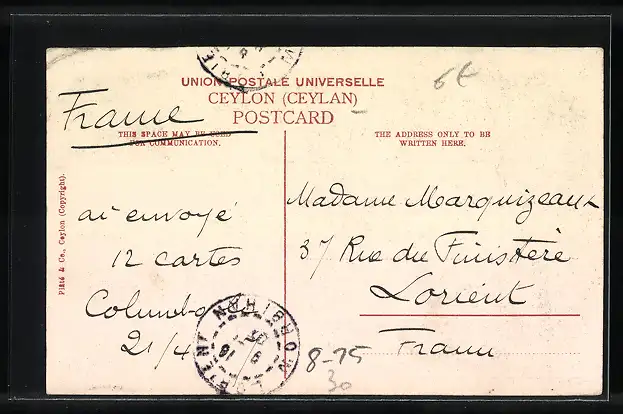 UNION POSTALE UNIVERSELLE
CEYLON (CEYLAN)
POSTCARD
6€
France
THIS SPACE MAY BE USED
FOR COMMUNICATION.
THE ADDRESS ONLY TO BE
WRITTEN HERE.
Plâté & Co., Ceylon (Copyright).
ai envoyé
12 cartes
Colombo
21/4
Madame Marquizeaux
37 Rue du Finistère
Lorient
France
LORIENT MORBIHAN
8-75
30